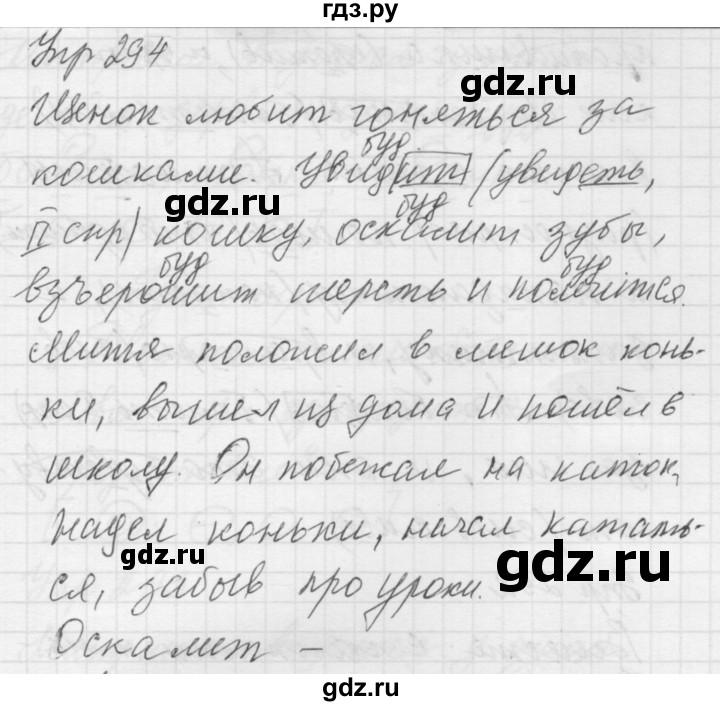 гдз.ру
Упр 294
Щенок любит гоняться за
gdz.ru
буд
кошками. Увидит (увидеть,
gdz.ru
буд
II спр) кошку, оскалит зубы,
буд
буд
взъерошит шерсть и помчится.
Митя положил в мешок конь-
ки, вышел из дома и пошёл в
школу. Он побежал на каток,
надел коньки, начал катать-
gdz.ru
gdz.ru
ся, забыв про уроки.
Оскалит –
gdz.ru